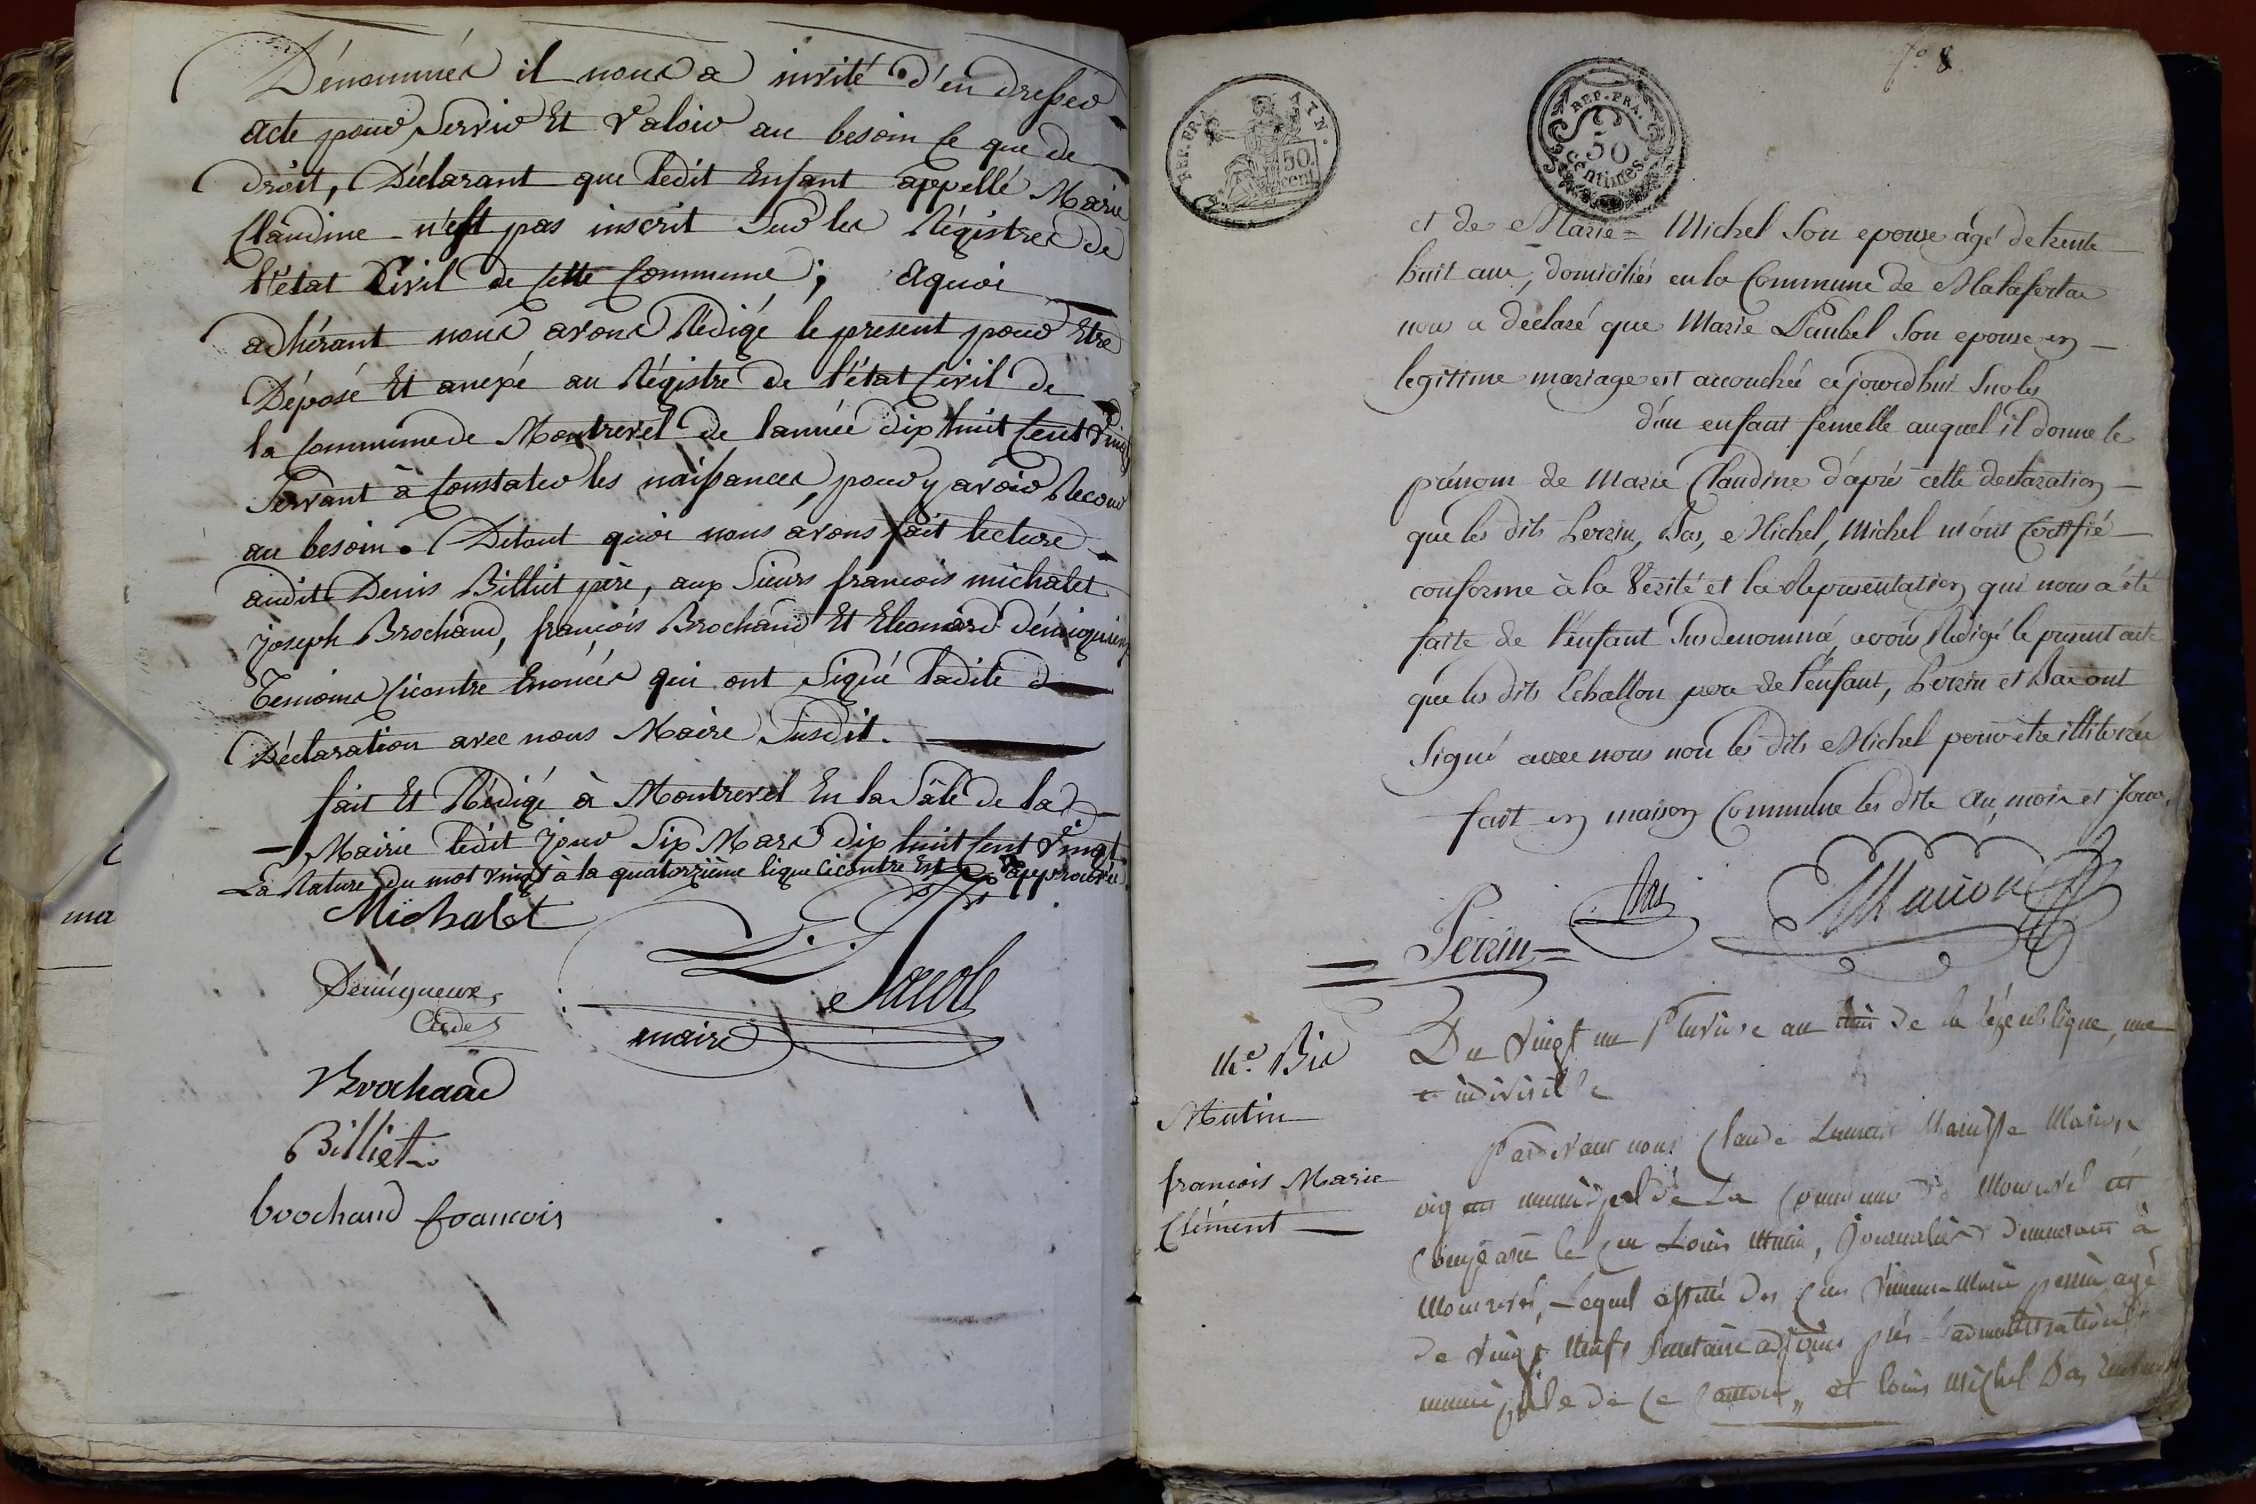 Dénommés il nous a invité d'en dressér
acte pour servir Et valoir au besoin ce que de
droit, Déclarant que ledit Enfant appellé Marie
Claudine n'est pas inscrit sur les Régistres de
l'état Civil de cette Commune; aquoi
adhérant nous avons Rédigé le present pour Etre
Déposé Et anexé au Régistre de l'état Civil de
la Commune de Montrevel de lannée dix huit Cent Vingt
Servant à Constater les naissances, pour y avoir Recour
au besoin. De tout quoi nous avons fait lecture
audit Denis Billiet père, aux Sieurs francois michalet
Joseph Brochand, françois Brochand Et Eleonard
Temoins Cicontre Enoncés qui ont Signé ladite
Déclaration avec nous Maire Susdit.
fait Et Rédigé à Montrevel En la Sale de la
Mairie ledit jour Six Mars dix huit Cent Vingt
La Rature du mot vingt à la quatorzième ligne Cicontre Est approuvée
Michalet
Cadet
Jacob
maire
Brochand
Billiet
brochand francois
fo. 8
REP. FRA.
50.
cent.
REP. FRA.
50
centimes
et de Marie = Michel Son epouse agé de trente
huit ans, domiciliés en la Commune de Malafertaz
nous a déclaré que Marie Paubel Son epouse en
legitime mariage est accouchée cejourd'hui Sur les
d'un enfant femelle auquel il donne le
prénom de Marie Claudine d'après cette declaration
que les dits Perrin, Bas, Michel, Michel m'ont Certifié
conforme à la Verité et la Representation qui nous a été
faite de l'enfant Susdenommé, avons Redigé le présent acte
que les dits Leballon pere de l'enfant, Perrin et Bas ont
Signé avec nous non les dits Michel pour être illitérés
fait en maison Commune les dits an, mois et Jour,
Perrin =
Bas
Manion
Du Vingt un Pluviose an de la République, une
et indivisible
Mutin
françois Marie
Clément
Pardevant nous Claude
municipal de la Commune de Montrevel est
comparu le Cen Louis Mutin, Journalier demeurant à
Montrevel, Lequel assisté des Cens perrin agé
de vingt neuf, Secretaire adjoint près L'administration
municipale de ce Canton, et louis Michel Bas